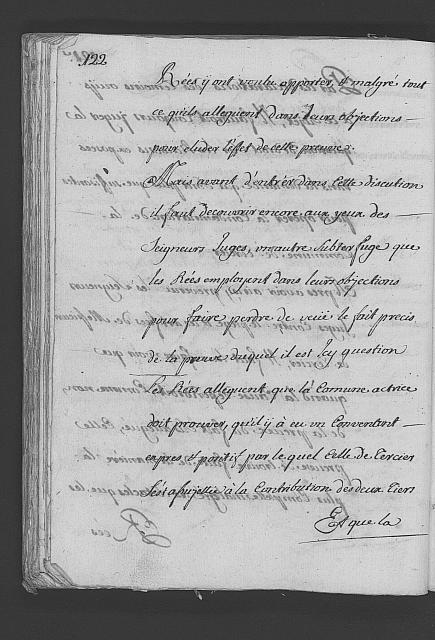 122
Rées y ont voulu apporter, et malgré tout
ce qu'ils alleguent dans leurs objections
pour eluder l'effet de cette preuve.
Mais avant d'entrer dans cette discution
il faut decouvrir encore aux yeux des
Seigneurs Juges, un autre subterfuge que
les Rées employent dans leurs objections
pour faire perdre de veüe le fait precis
de la preuve duquel il est icy question
Les Rées alleguent que la Comune actrice
doit prouver, qu'il y à eu un Convenant
expres, et positif par le quel Celle de Tercier
s'est assujettie à la Contribution des deux Tiers
Et que la